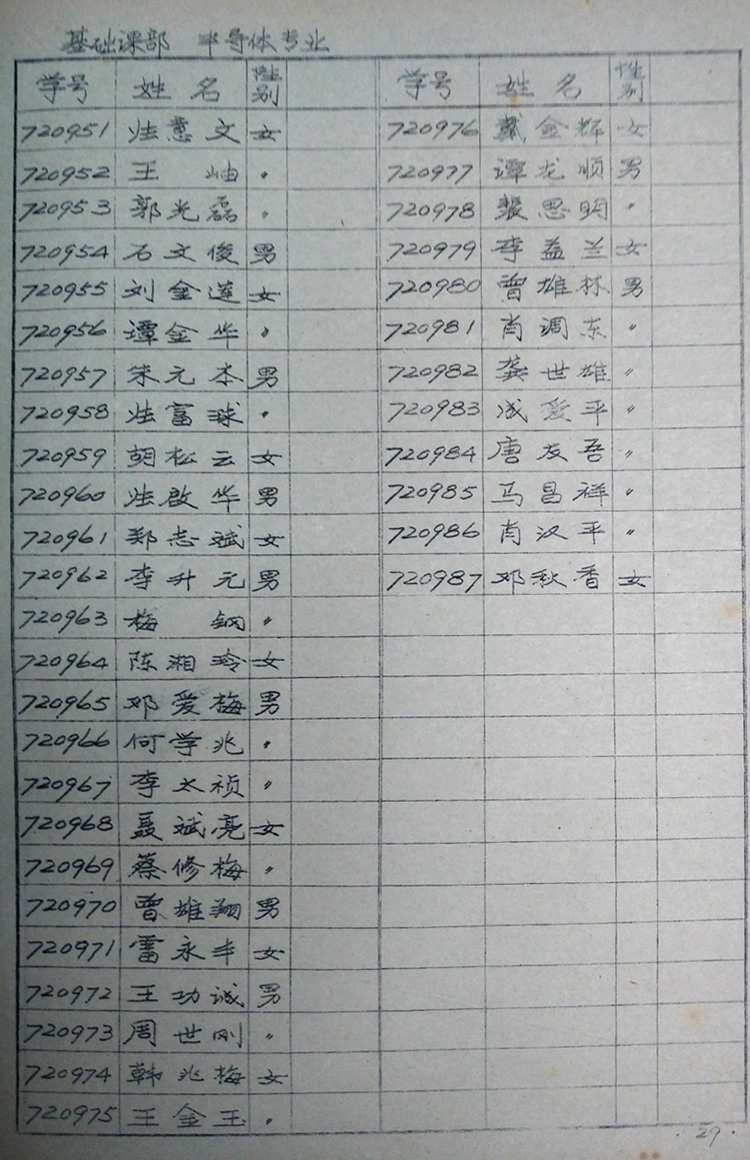 基础课部 半导体专业
学号 姓名 性别 学号 姓名 性别
720951 意文 女 720976 戴金辉 女
720952 王岫 〃 720977 谭龙顺 男
720953 郭光磊 〃 720978 裴思明 〃
720954 石文俊 男 720979 李益兰 女
720955 刘金莲 女 720980 曾雄林 男
720956 谭金华 〃 720981 肖调东 〃
720957 朱元本 男 720982 龚世雄 〃
720958 富球 〃 720983 成爱平 〃
720959 胡松云 女 720984 唐友吾 〃
720960 啟华 男 720985 马昌祥 〃
720961 郑志斌 女 720986 肖汉平 〃
720962 李升元 男 720987 邓秋香 女
720963 梅钢 〃
720964 陈湘玲 女
720965 邓爱梅 男
720966 何学兆 〃
720967 李太祯 〃
720968 聂斌亮 女
720969 蔡修梅 〃
720970 曾雄翔 男
720971 雷永丰 女
720972 王功诚 男
720973 周世刚 〃
720974 韩兆梅 女
720975 王金玉 〃
· 29 ·